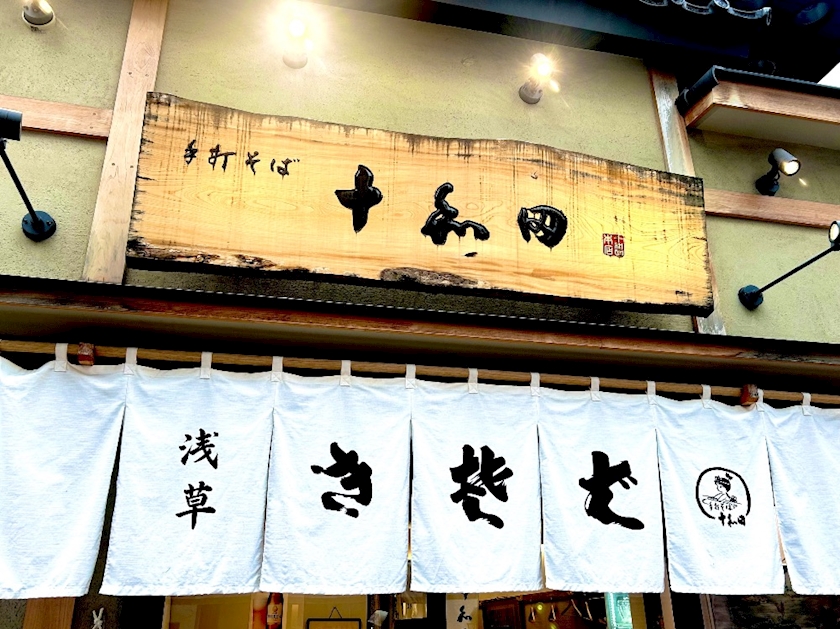 手打そば
十和田
浅草
きそば
手打そば
十和田
十和